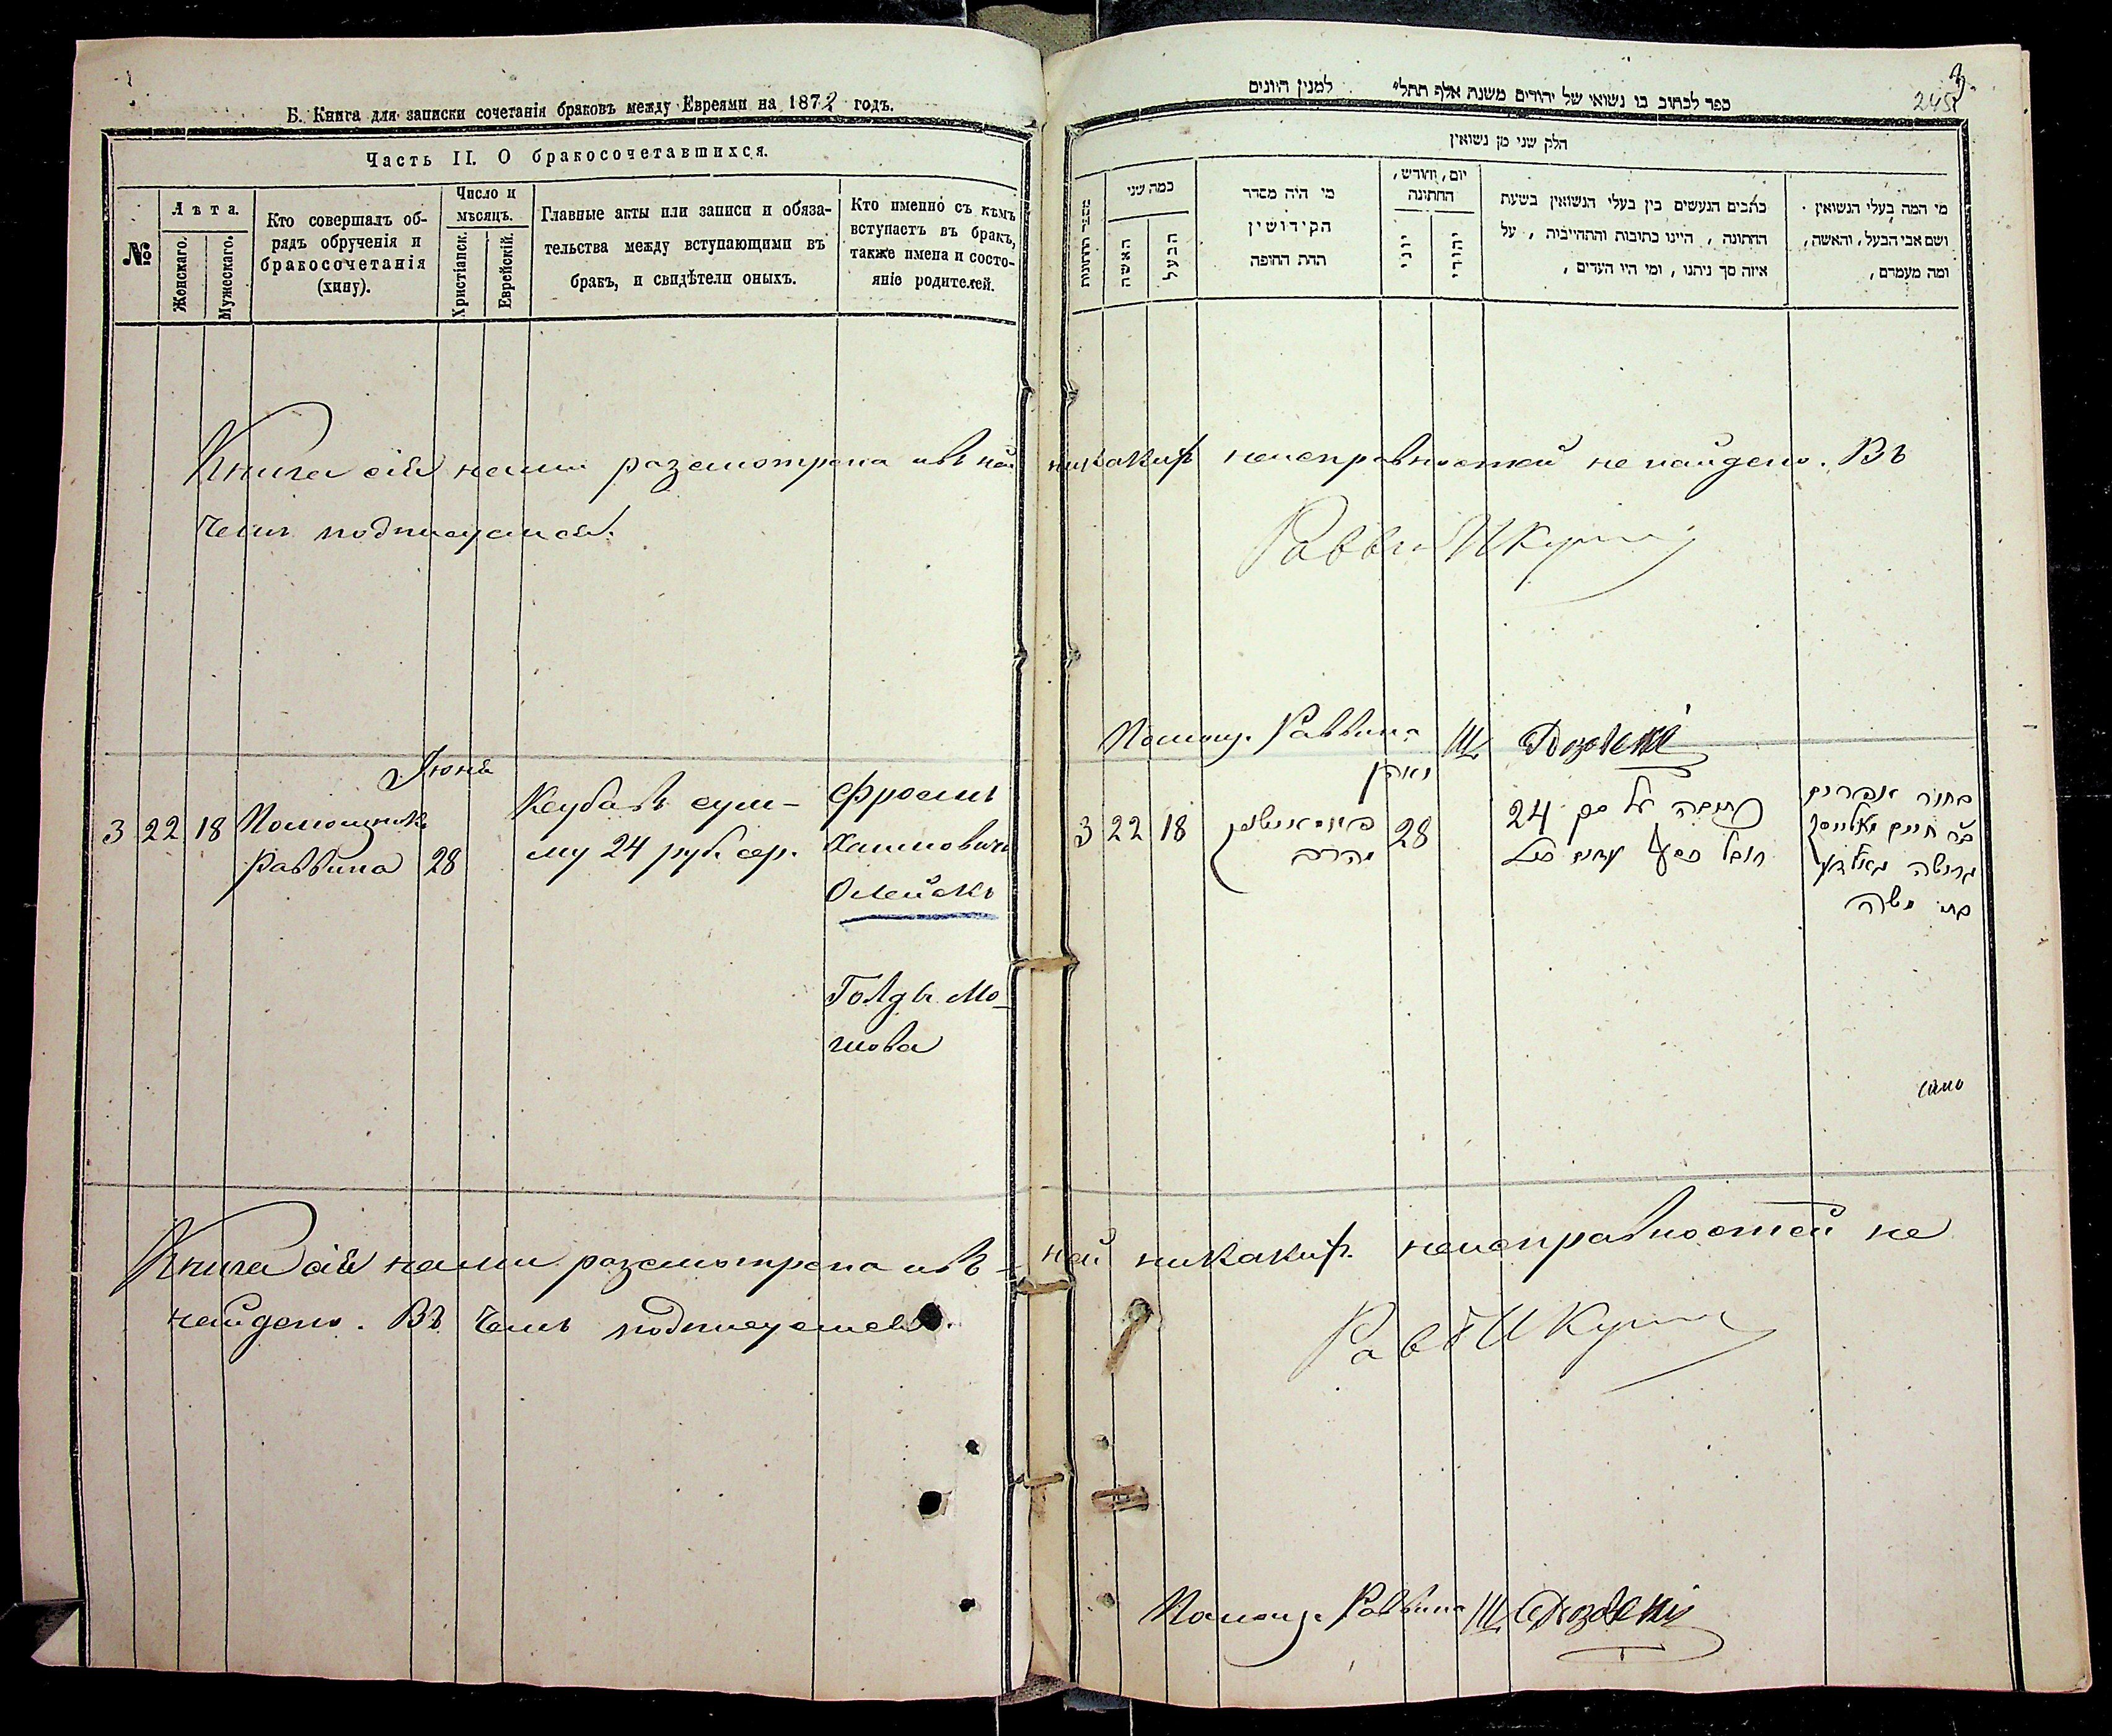 Б. Книга для записки сочетанія браковъ между Евреями на 1872 годъ.
Часть II. О бракосочетавшихся.
№
Лѣта.
Женскаго.
Мужескаго.
Кто совершалъ об-
рядъ обрученія и
бракосочетанія
(хипу).
Число и
мѣсяцъ.
Христіанск.
Еврейскій.
Главные акты или записи и обяза-
тельства между вступающими въ
бракъ, и свидѣтели оныхъ.
Кто именно съ кѣмъ
вступаетъ въ бракъ,
также имена и состо-
яніе родителей.
Книга сія нами разсмотрена и въ ней
чемъ подписуемся.
Іюня
3 22 18 Помощникъ
Раввина 28
Ксуба въ сум-
му 24 руб сер.
Фроимъ
Хаимовичъ
Олейскъ
Голда Мо-
шова
Книга сія нами разсмотрена и въ
найдено. Въ чемъ подписуемся.
3
245
ספר לכתוב בו נשואי של יהודים משנת אלף תתל״ למנין היונים
חלק שני מן נשואין
מספר החתונות
כמה שני
האשה
הבעל
מי היה מסדר
הקידושין
תחת החופה
יום, וחודש,
החתונה
יוני
יהודי
כתבים הנעשים בין בעלי הנשואין בשעת
החתונה, היינו כתובות והתחייבות, על
איזה סך ניתנו, ומי היו העדים,
מי המה בעלי הנשואין
ושם אבי הבעל, והאשה,
ומה מעמדם,
никакихъ неисправностей не найдено. Въ
Раввинъ Шкурин
Помощ. Раввина Ш
3 22 18
28
כתובה על סך 24
בחור אפרים
בר חיים
גרושה גאלדע
בת משה
ней никакихъ неисправностей не
Рав Шкурин
Помощ. Раввина Ш